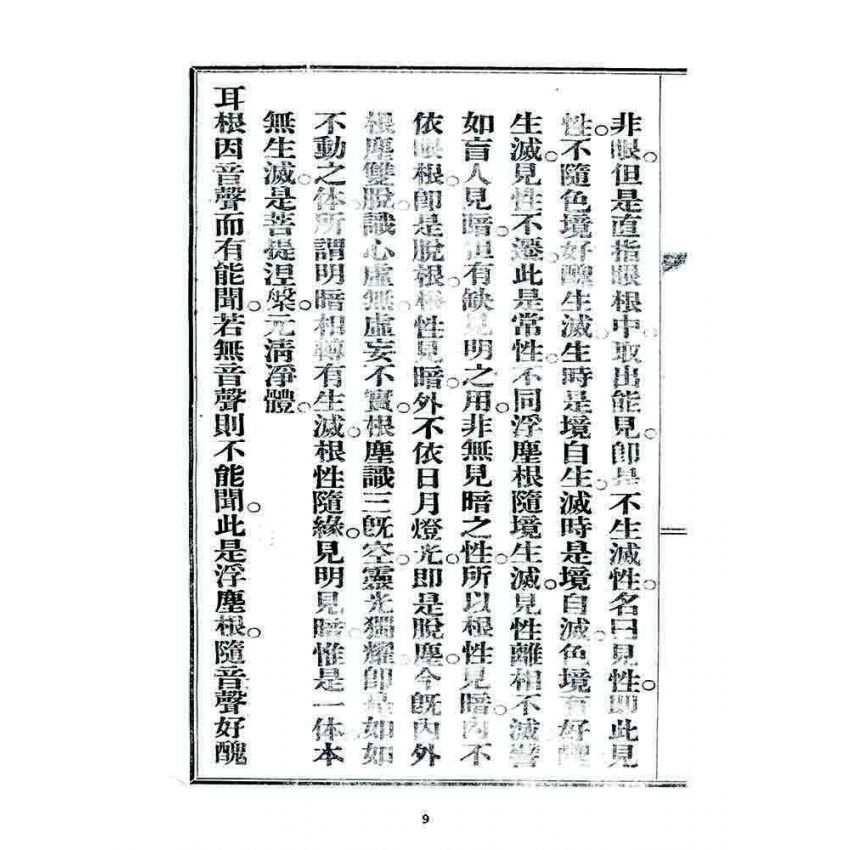 非眼。但是直指眼根中。取出能見。即是不生滅性。名曰見性。即此見
性。不隨色境好醜生滅。生時是境自生。滅時是境自滅。色境有好醜
生滅。見性不遷。此是常性。不同浮塵根隨境生滅。見性離相不滅。譬
如盲人見暗。但有缺見明之用。非無見暗之性。所以根性見暗。內不
依眼根。即是脫根。根性見暗。外不依日月燈光。即是脫塵。今既內外
根塵雙脫。識心虛無。虛妄不實。根塵識三既空。靈光獨耀。即是如如
不動之体。所謂明暗相轉有生滅。根性隨緣。見明見暗。惟是一体。本
無生滅。是菩提涅槃。元清淨體。
耳根因音聲而有能聞。若無音聲則不能聞。此是浮塵根。隨音聲好醜
9